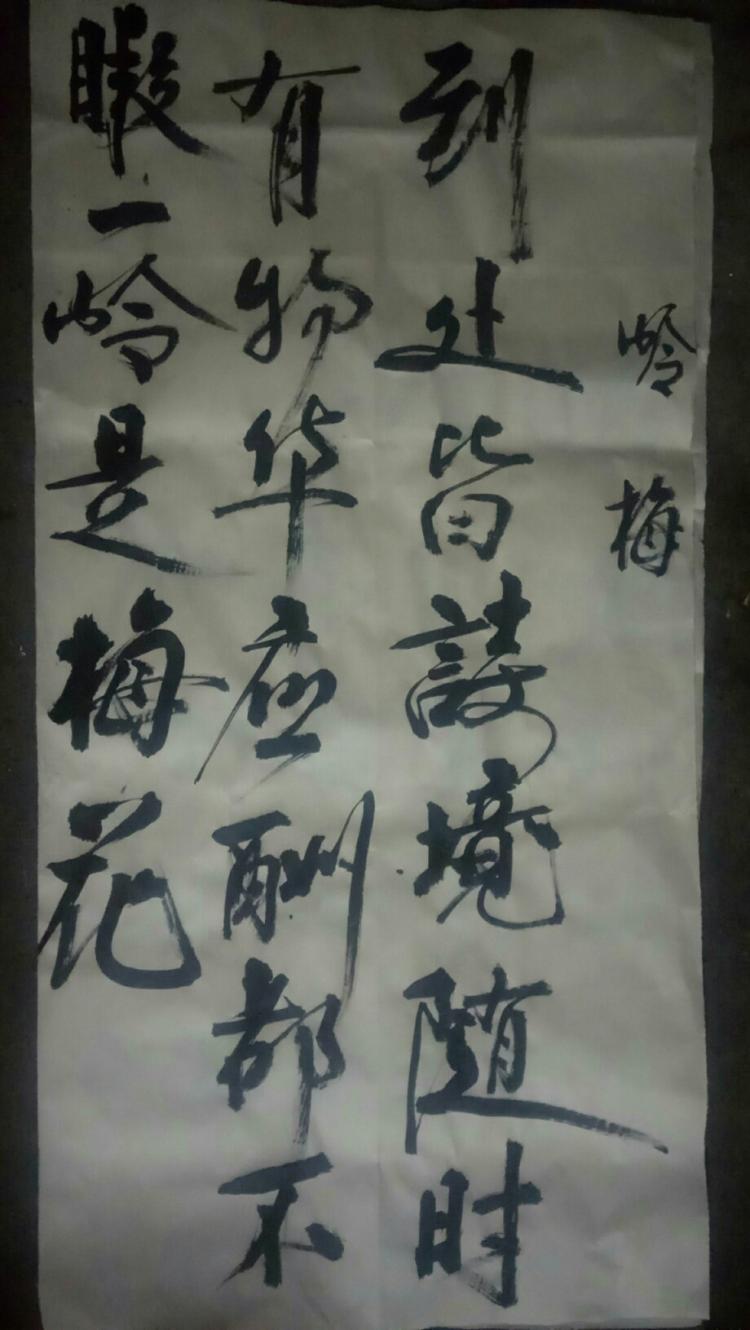 岭梅
到处皆詩境随时
有物华应酬都不
暇一岭是梅花